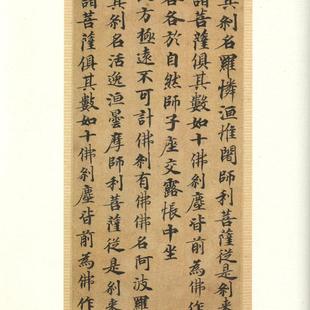 其刹名羅憐洹惟闍師利菩薩從是刹
諸菩薩俱其數如十佛刹塵皆前為佛
各各於自然師子座交露悵中坐
方極遠不可計佛刹有佛佛名阿波羅
其刹名活逸洹曇摩師利菩薩從是刹来
諸菩薩俱其數如十佛刹塵皆前為佛作